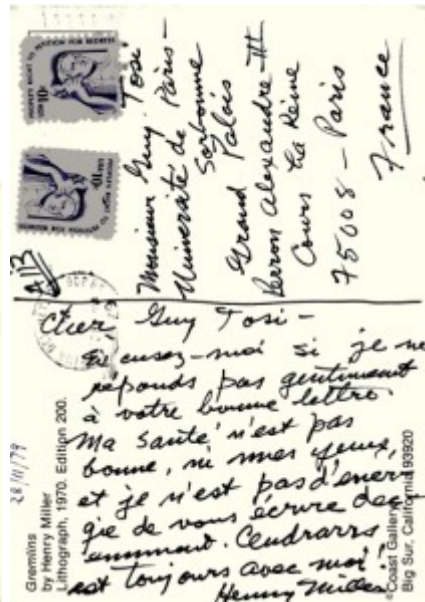 PEOPLE'S RIGHT TO PETITION FOR REDRESS
USA 10c
PEOPLE'S RIGHT TO PETITION FOR REDRESS
USA 10c
Monsieur Guy Tosi
Université de Paris-
Sorbonne
Grand Palais
Perron Alexandre-III
Cours la Reine
75008 - Paris
France
Cher Guy Tosi -
Excusez-moi si je ne
réponds pas gentiment
à votre bonne lettre.
Ma santé n'est pas
bonne, ni mes yeux,
et je n'est pas d'ener
gie de vous écrire dec-
emment. Cendrars
est toujours avec moi!
Henry Miller
28/11/79
Gremlins
by Henry Miller
Lithograph, 1970. Edition 200.
©Coast Gallery
Big Sur, California 93920